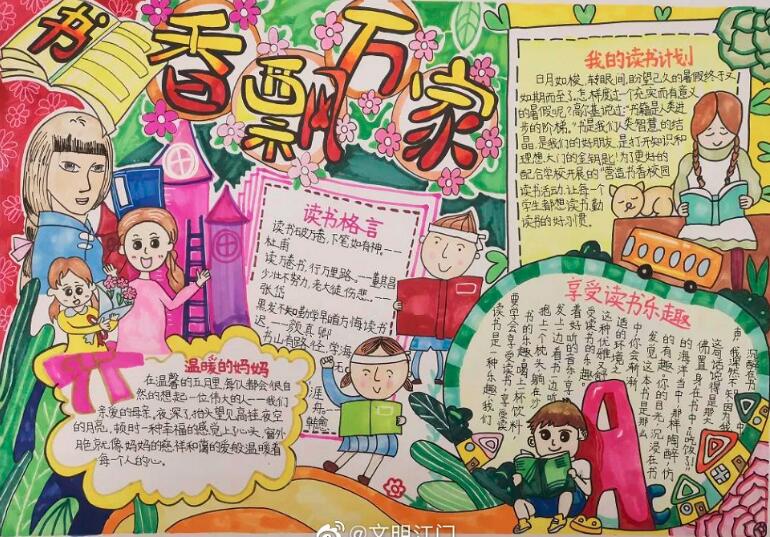 书香飘万家
我的读书计划
日月如梭,转眼间,盼望已久的暑假终于又
如期而至了,怎样度过一个充实而有意义
的暑假呢?高尔基说过:"书籍是人类进
步的阶梯。"书是我们人类智慧的结
晶,是我们的好朋友,是打开知识和
理想大门的金钥匙!为了更好的
配合学校开展的"营造书香校园
读书活动,让每一个
学生都想读书,勤
读书的好习惯。
读书格言
读书破万卷,下笔如有神。——
杜甫
读万卷书,行万里路。——董其昌
少壮不努力,老大徒伤悲。——
张岱
黑发不知勤学早,白首方悔读书
迟。——颜真卿
书山有路 径,学海
无
涯
舟。
韩愈
享受读书乐趣
沉醉
这句话说得是那
佛置身在书中
的海洋当中,那样陶醉,仿
的有趣,你的目光,沉浸在书
发现,这本书是那么
中,你会渐渐
适的环境之
这种优雅又舒
受读书的乐趣
着好听的音乐,享
发上,一边看书一边听
抱上个枕头,躺在沙
书的乐趣,喝上一杯饮料
要学会享受读书,享受读
读书是一种乐趣,我们
温暖的妈妈
在温馨的五月里,每个人都会很自
然的想起一位伟大的人——我们
亲爱的母亲,夜深了,抬头望见高挂夜空
的月亮,顿时一种幸福的感觉上心头,窗外
月色就像妈妈的慈祥和蔼的爱般温暖着
每一个人的心。
@文明江门